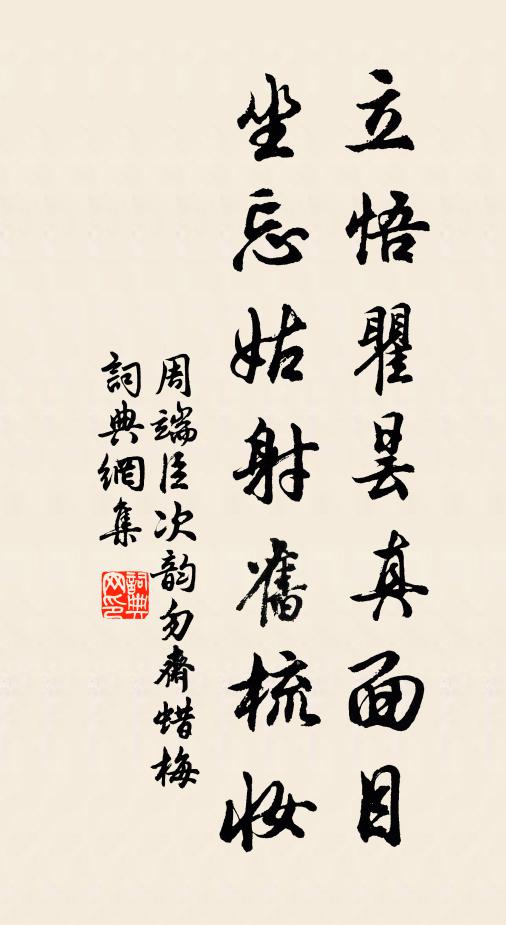 立悟瞿昙真面目
坐忘姑射舊梳妝
周端臣次韵勿齋蜡梅
詞典網集
詞典网印